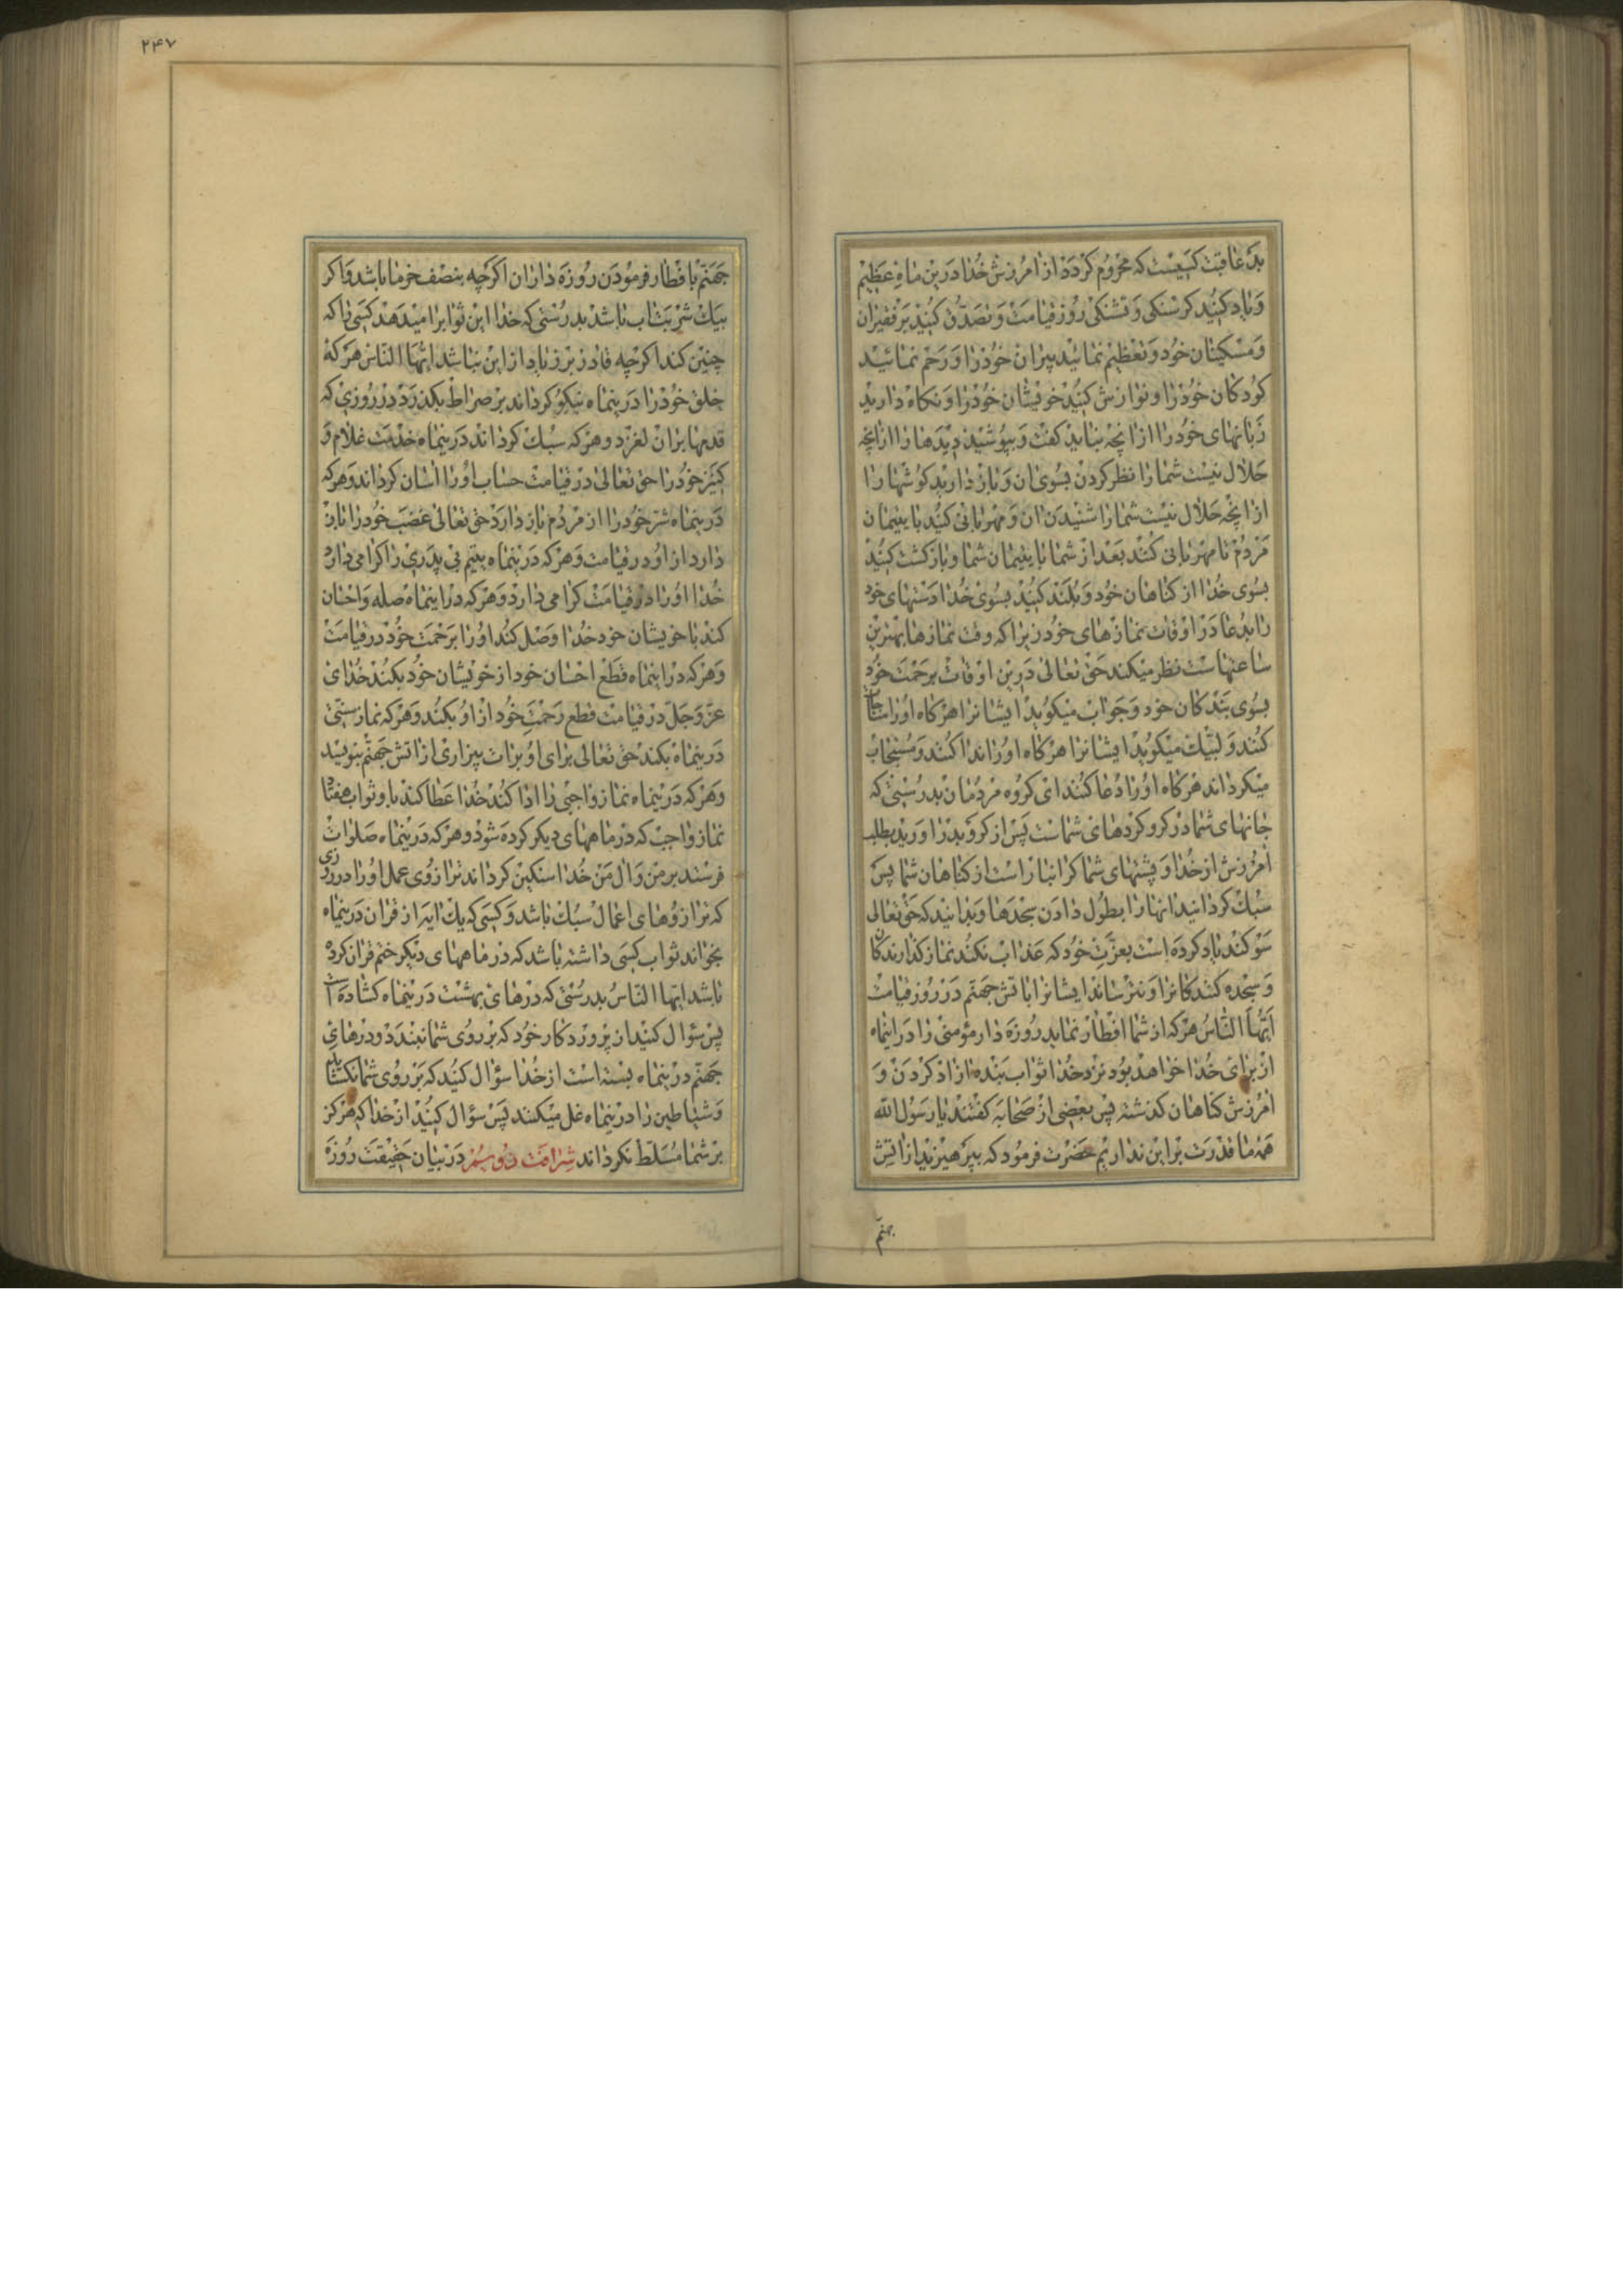 بد عاقبت کسیست که محروم کردد از امرزش خدا درین ماه عظیم
و یاد کنید کرسنکی و تشنکی روز قیامت و تصدق کنید بر فقیران
و مسکینان خود و تعظیم نمائید پیران خود را و رحم نمائید
کودکان خود را و نوازش کنید خویشان خود را و نکاه دارید
زبانهای خود را از انچه نباید کفت و بپوشید دیدها را از انچه
حلال نیست شما را نظر کردن بسوی ان و باز دارید کوشها را
از انچه حلال نیست شما را شنیدن ان و مهربانی کنید با یتیمان
مردم تا مهربانی کنند بعد از شما با یتیمان شما و بازکشت کنید
بسوی خدا از کناهان خود و بلند کنید بسوی خدا دستهای خود
را بدعا در اوقات نمازهای خود زیرا که وقت نمازها بهترین
ساعتهاست نظر میکند حق تعالی درین اوقات برحمت خود
بسوی بندکان خود و جواب میکوید ایشانرا هرکاه او را مناجات
کنند و لبیک میکوید ایشانرا هرکاه او را ندا کنند و مستجاب
میکرداند هرکاه او را دعا کنند ای کروه مردمان بدرستی که
جانهای شما در کرو کردهای شماست پس از کرو بدر اورید بطلب
امرزش از خدا و پشتهای شما کرانبار است از کناهان شما پس
سبک کردانید انها را بطول دادن سجدها و بدانید که حق تعالی
سوکند یاد کرده است بعزت خود که عذاب نکند نماز کذارندکان
و سجده کنندکانرا و نترساند ایشانرا باتش جهنم در روز قیامت
ایها الناس هر که از شما افطار نماید روزه دار مؤمنی را در اینماه
از برای خدا خواهد بود نزد خدا ثواب بنده ازاد کردن و
امرزش کناهان کذشته پس بعضی از صحابه کفتند یا رسول الله
همه ما قدرت بر این نداریم حضرت فرمود که بپرهیزید از اتش
جهنم
۲۴۷
جهنم با فطار فرمودن روزه داران اکرچه بنصف خرما باشد و اکر
بیک شربت اب باشد بدرستی که خدا این ثوابرا میدهد کسی را که
چنین کند اکرچه قادر بر زیاد از این نباشد ایها الناس هر که
خلق خود را درینماه نیکو کرداند بر صراط بکذرد در روزی که
قدمها بران لغزد و هر که سبک کرداند درینماه خدمت غلام و
کنیز خود را حق تعالی در قیامت حساب او را اسان کرداند و هر که
درینماه شر خود را از مردم باز دارد حق تعالی غضب خود را باز
دارد از او در قیامت و هر که درینماه یتیم بی پدری را کرامی دارد
خدا او را در قیامت کرامی دارد و هر که در اینماه صله و احسان
کند با خویشان خود خدا وصل کند او را برحمت خود در قیامت
و هر که در اینماه قطع احسان خود از خویشان خود بکند خدای
عز و جل در قیامت قطع رحمت خود از او بکند و هر که نماز سنتی
درینماه بکند حق تعالی برای او برات بیزاری از اتش جهنم بنویسد
و هر که درینماه نماز واجبی را ادا کند خدا عطا کند باو ثواب هفتاد
نماز واجب که در ماههای دیکر کرده شود و هر که درینماه صلوات
فرستد بر من و ال من خدا سنکین کرداند ترازوی عمل او را در روزی
که ترازوهای اعمال سبک باشد و کسی که یک ایه از قران درینماه
بخواند ثواب کسی داشته باشد که در ماههای دیکر ختم قران کرده
باشد ایها الناس بدرستی که درهای بهشت درینماه کشاده است
پس سؤال کنید از پروردکار خود که بر روی شما نبندد و درهای
جهنم درینماه بسته است از خدا سؤال کنید که بر روی شما نکشاید
و شیاطین را درینماه غل میکنند پس سؤال کنید از خدا که هرکز
بر شما مسلط نکرداند شرافت دویم در بیان حقیقت روزه